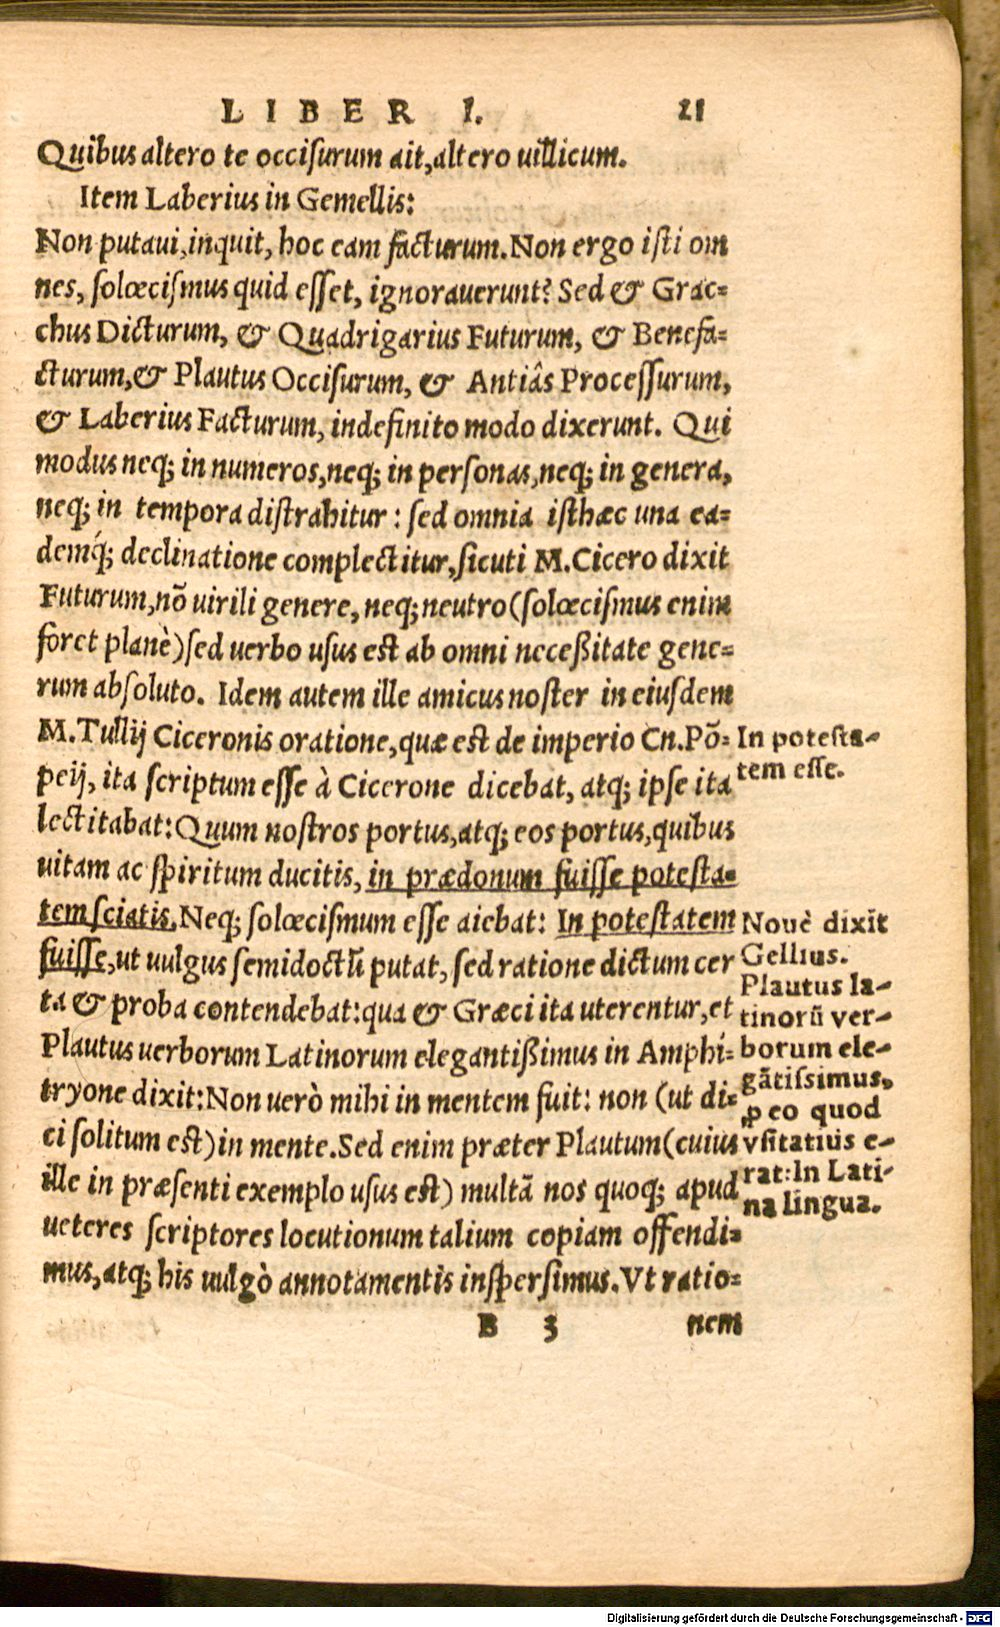 LIBER I. 21
Quibus altero te occisurum ait, altero uillicum.
Item Laberius in Gemellis:
Non putaui, inquit, hoc eam facturum. Non ergo isti om
nes, solœcismus quid esset, ignorauerunt? Sed & Grac-
chus Dicturum, & Quadrigarius Futurum, & Benefa-
cturum, & Plautus Occisurum, & Antiâs Processurum,
& Laberius Facturum, indefinito modo dixerunt. Qui
modus neq; in numeros, neq; in personas, neq; in genera,
neq; in tempora distrahitur: sed omnia isthæc una ea-
demq́; declinatione complectitur, sicuti M. Cicero dixit
Futurum, nõ uirili genere, neq; neutro (solœcismus enim
foret planè) sed uerbo usus est ab omni neceßitate gene-
rum absoluto. Idem autem ille amicus noster in eiusdem
M. Tullij Ciceronis oratione, quæ est de imperio Cn. Põ-
peij, ita scriptum esse à Cicerone dicebat, atq; ipse ita
lectitabat: Quum nostros portus, atq; eos portus, quibus
uitam ac spiritum ducitis, in prædonum fuisse potesta-
tem sciatis. Neq; solœcismum esse aiebat: In potestatem
fuisse, ut uulgus semidoctũ putat, sed ratione dictum cer
ta & proba contendebat: qua & Græci ita uterentur, et
Plautus uerborum Latinorum elegantißimus in Amphi-
tryone dixit: Non uerò mihi in mentem fuit: non (ut di-
ci solitum est) in mente. Sed enim præter Plautum (cuius
ille in præsenti exemplo usus est) multã nos quoq; apud
ueteres scriptores locutionum talium copiam offendi-
mus, atq; his uulgò annotamentis inspersimus. Vt ratio-
B 3 nem
In potesta-
tem esse.
Nouè dixit
Gellius.
Plautus la-
tinorũ ver-
borum ele-
gãtissimus,
ꝓ eo quod
vsitatius e-
rat: In Lati-
na lingua.
Digitalisierung gefördert durch die Deutsche Forschungsgemeinschaft - DFG